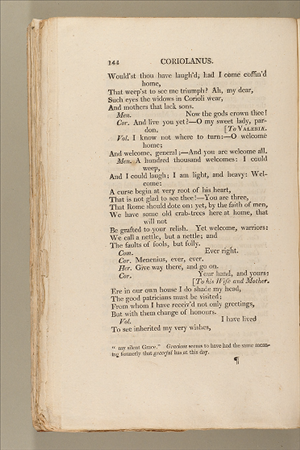 144 CORIOLANUS.
Would'st thou have laugh'd, had I come coffin'd
home,
That weep'st to see me triumph? Ah, my dear,
Such eyes the widows in Corioli wear,
And mothers that lack sons.
Men. Now the gods crown thee!
Cor. And live you yet?—O my sweet lady, par-
don. [To VALERIA.
Vol. I know not where to turn:—O welcome
home;
And welcome, general;—And you are welcome all.
Men. A hundred thousand welcomes: I could
weep,
And I could laugh; I am light, and heavy: Wel-
come:
A curse begin at very root of his heart,
That is not glad to see thee!—You are three,
That Rome should dote on: yet, by the faith of men,
We have some old crab-trees here at home, that
will not
Be grafted to your relish. Yet welcome, warriors:
We call a nettle, but a nettle; and
The faults of fools, but folly.
Com. Ever right.
Cor. Menenius, ever, ever.
Her. Give way there, and go on.
Cor. Your hand, and yours:
[To his Wife and Mother.
Ere in our own house I do shade my head,
The good patricians must be visited;
From whom I have receiv'd not only greetings,
But with them change of honours.
Vol. I have lived
To see inherited my very wishes,
" my silent Grace." Gracious seems to have had the same mean-
ing formerly that graceful has at this day.
¶